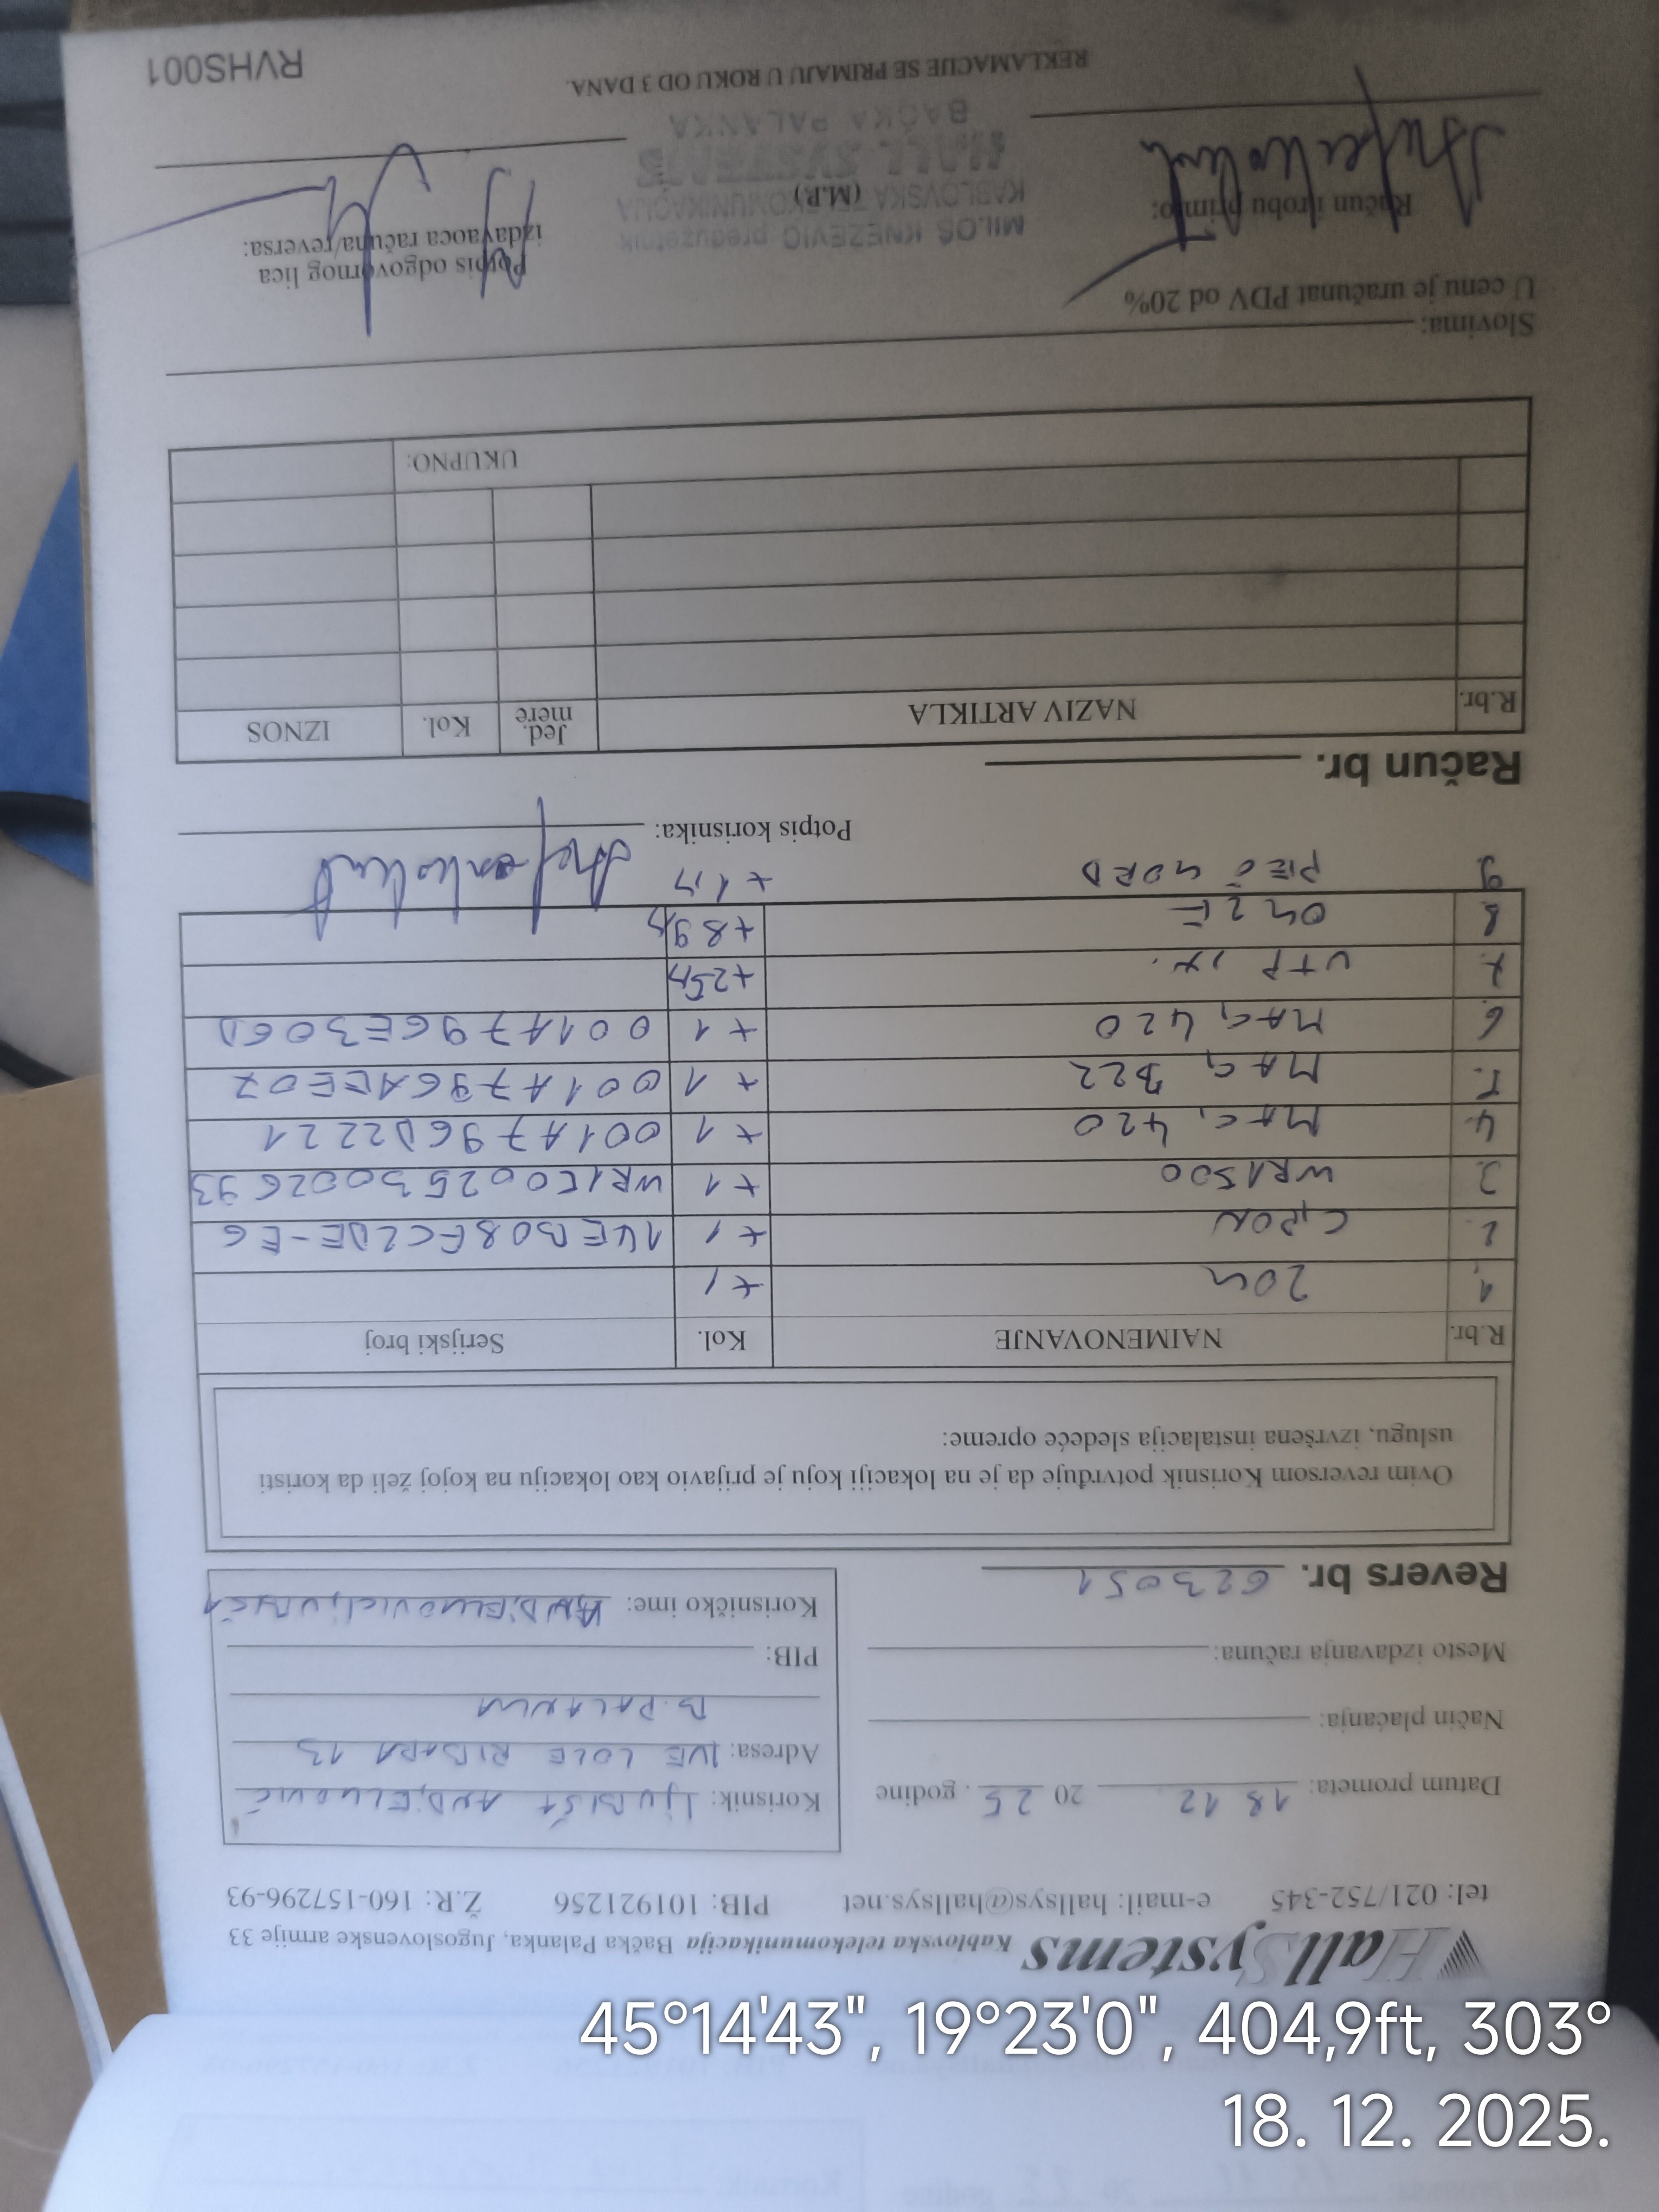 HallSystems Kablovska telekomunikacija Bačka Palanka, Jugoslovenske armije 33
tel: 021/752-345 e-mail: hallsys@hallsys.net PIB: 101921256 Ž.R: 160-157296-93
Datum prometa: 18 12 20 25 . godine
Način plaćanja:
Mesto izdavanja računa:
Revers br. 623051
Korisnik: LjUBIŠA ANDJELKOVIĆ
Adresa: IVE LOLE RIBARA 13
B. PALANKA
PIB:
Korisničko ime:
Ovim reversom Korisnik potvrđuje da je na lokaciji koju je prijavio kao lokaciju na kojoj želi da koristi
uslugu, izvršena instalacija sledeće opreme:
R.br. NAIMENOVANJE Kol. Serijski broj
1. ZOK +1
2. GPON +1 14EB08FC2DE-E6
3. WR1500 +1 WR1E002530002693
4. MAG 420 +1 001A796D2221
5. MAG 322 +1 001A796AEE07
6. MAG 420 +1 001A796E306D
7. UTP +25m
8. +89m
9 +1m
Potpis korisnika:
Račun br.
R.br. NAZIV ARTIKLA Jed. mere Kol. IZNOS
UKUPNO:
Slovima:
U cenu je uračunat PDV od 20%
Račun i robu primio:
(M.P.)
Potpis odgovornog lica
izdavaoca računa/reversa:
MILOŠ KNEŽEVIĆ preduzetnik
KABLOVSKA TELEKOMUNIKACIJA
HALL SYSTEMS
BAČKA PALANKA
REKLAMACIJE SE PRIMAJU U ROKU OD 3 DANA.
RVHS001
45°14'43", 19°23'0", 404,9ft, 303°
18. 12. 2025.